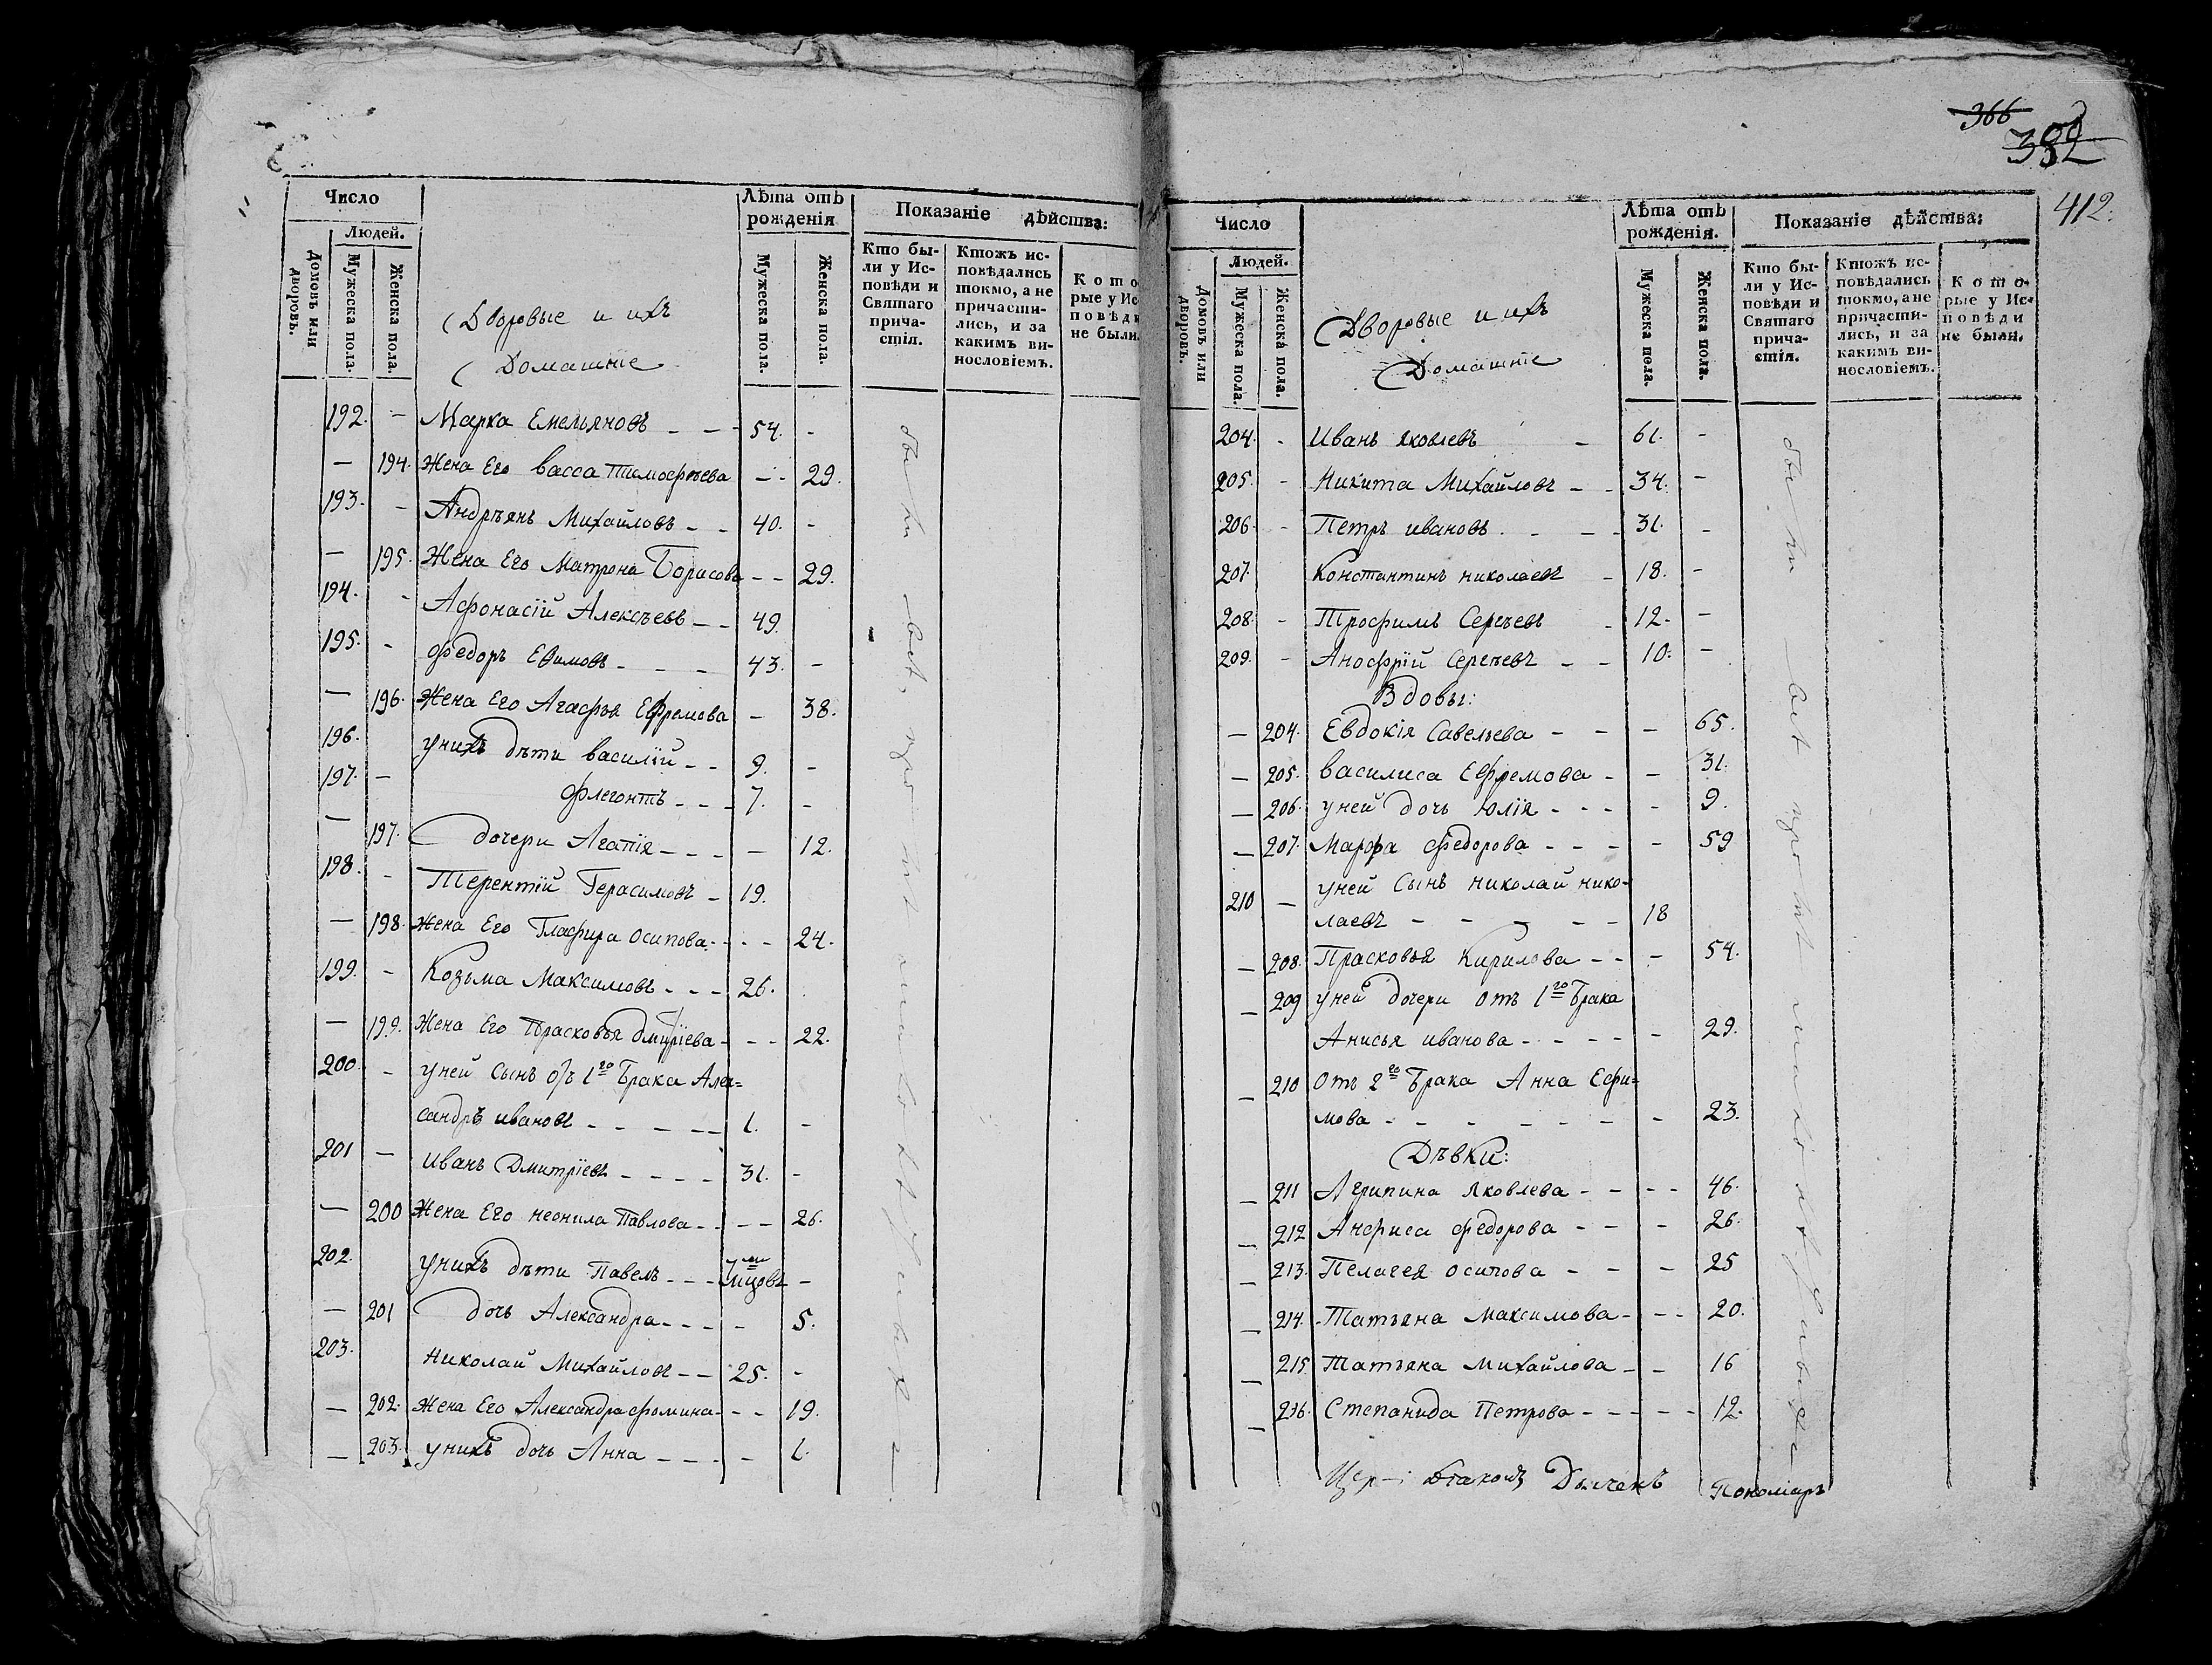 Число
Людей.
Домовъ или дворовъ.
Мужеска пола.
Женска пола.
Дворовые и ихъ
Домашніе
Лѣта отъ рожденія
Мужеска пола.
Женска пола.
Показаніе дѣйства:
Кто бы-
ли у Ис-
повѣди и
Святаго
прича-
стія.
Ктожъ ис-
повѣдались
токмо, а не
причасти-
лись, и за
какимъ ви-
нословіемъ.
Кото
рые у Ис
повѣди
не были.
192. - Марка Емельяновъ - - - 54. -
— 194. Жена Его васса Тимофѣева - - 29.
193. - Андрѣянъ Михайловъ - - 40. -
— 195. Жена Его Матрона Борисова - - 29.
194. - Афонасій Алексѣевъ - - 49.
195. - Федоръ Ефимовъ - - - 43. -
— 196. Жена Его Агафья Ефремова - 38.
196. унихъ дѣти василій - - 9. -
197. - Флегонтъ - - - 7. -
— 197. дочери Агапія - - - - 12.
198. - Терентій Герасимовъ - 19.
— 198. Жена Его Глафира осипова - - - - 24.
199. - Козьма Максимовъ - - - 26.
— 199. Жена Его Прасковья дмитріева - - - 22.
200. - уней Сынъ отъ 1го Брака Алек=
сандръ ивановъ - - - - - 1. -
201 — иванъ Дмитріевъ - - - - 31. -
— 200 Жена Его неонила Павлова - - - - 26.
202. унихъ дѣти Павелъ - - - 7ми
мцовъ -
— 201 дочь Александра - - - - - 5.
203. николай Михайловъ - - 25. -
— 202. Жена Его Александра фомина - - - 19.
— 203. унихъ дочь Анна - - - - 1.
366
382
412.
Число
Людей.
Домовъ или дворовъ.
Мужеска пола.
Женска пола.
Дворовые и ихъ
Домашніе
Лѣта отъ рожденія.
Мужеска пола.
Женска пола.
Показаніе дѣйства:
Кто бы-
ли у Ис-
повѣди и
Святаго
прича-
стія.
Ктожъ ис-
повѣдались
токмо, а не
причасти-
лись, и за
какимъ ви-
нословіемъ.
Кото-
рые у Ис-
повѣди
не были.
204. - иванъ яковлевъ - 61. -
205. - Никита Михайловъ - - 34. -
206. - Петръ ивановъ - - - 31. -
207. Константинъ николаевъ - 18. -
208. - Трофимъ Сергѣевъ - 12. -
209. - Анофрій Сергѣевъ - - 10. -
Вдовы:
— 204. Евдокія Савельева - - - 65.
— 205. василиса Ефремова - - 31.
— 206. уней дочь Юлія - - - - 9.
— 207. Марфа Федорова - - - - 59
210 — уней Сынъ николай нико-
лаевъ - - - - - 18
— 208. Прасковья Кирилова - - - 54.
— 209 уней дочери отъ 1го Брака
Анисья иванова - - - - - 29.
— 210 Отъ 2го Брака Анна Ефи=
мова - - - - - - - 23.
Дѣвки:
— 211 Агрипина Яковлева - - - - 46.
— 212 Анфиса федорова - - - 26.
— 213. Пелагея осипова - - - 25
— 214. Татьяна Максимова - - - 20.
— 215. Татьяна Михайлова - - 16
— 216. Степанида Петрова - - - - - 12.
Пономаръ